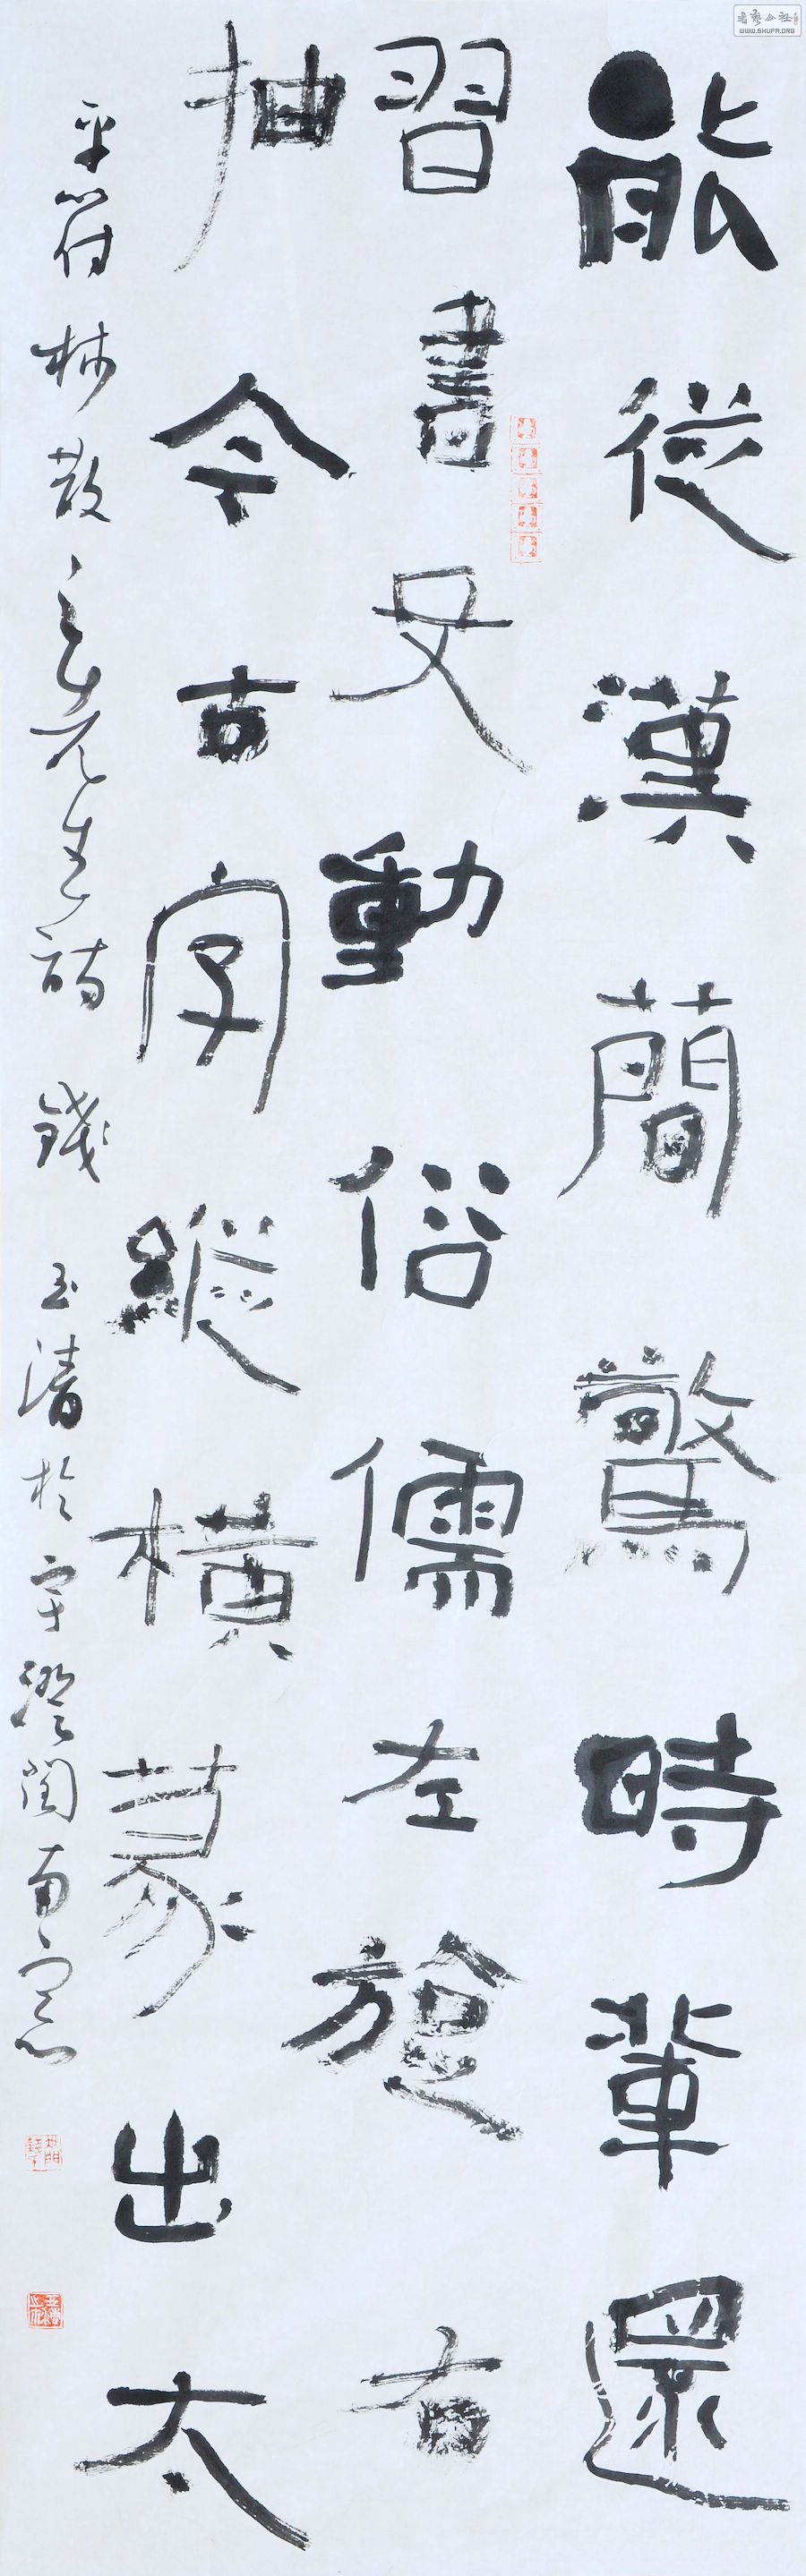 能從漢簡驚時輩還
習書殳動俗儒左旋右
抽今古字縱橫篆出太
平符 林散之先生詩 錢玉清於南窗
书艺公社
WWW.SHUFA.ORG